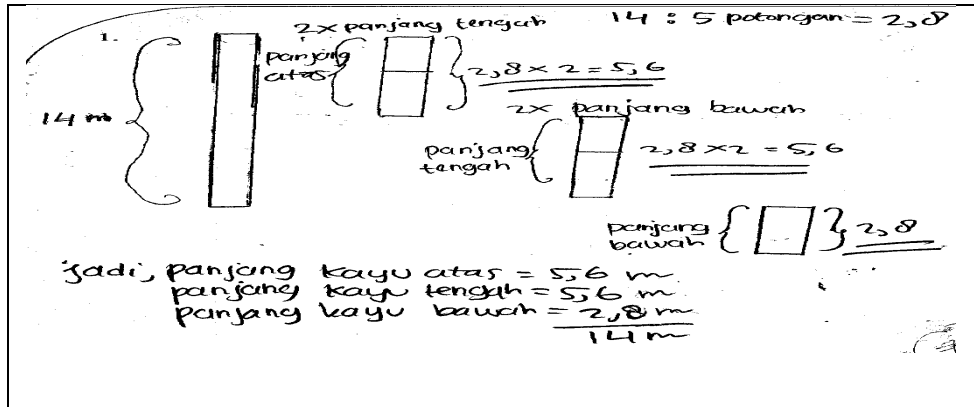 2x panjang tengah
14 : 5 potongan = 2,8
1.
panjang
atas
2,8 x 2 = 5,6
14 m
2x panjang bawah
panjang
tengah
2,8 x 2 = 5,6
panjang
bawah
2,8
jadi, panjang kayu atas = 5,6 m
panjang kayu tengah = 5,6 m
panjang kayu bawah = 2,8 m
14 m